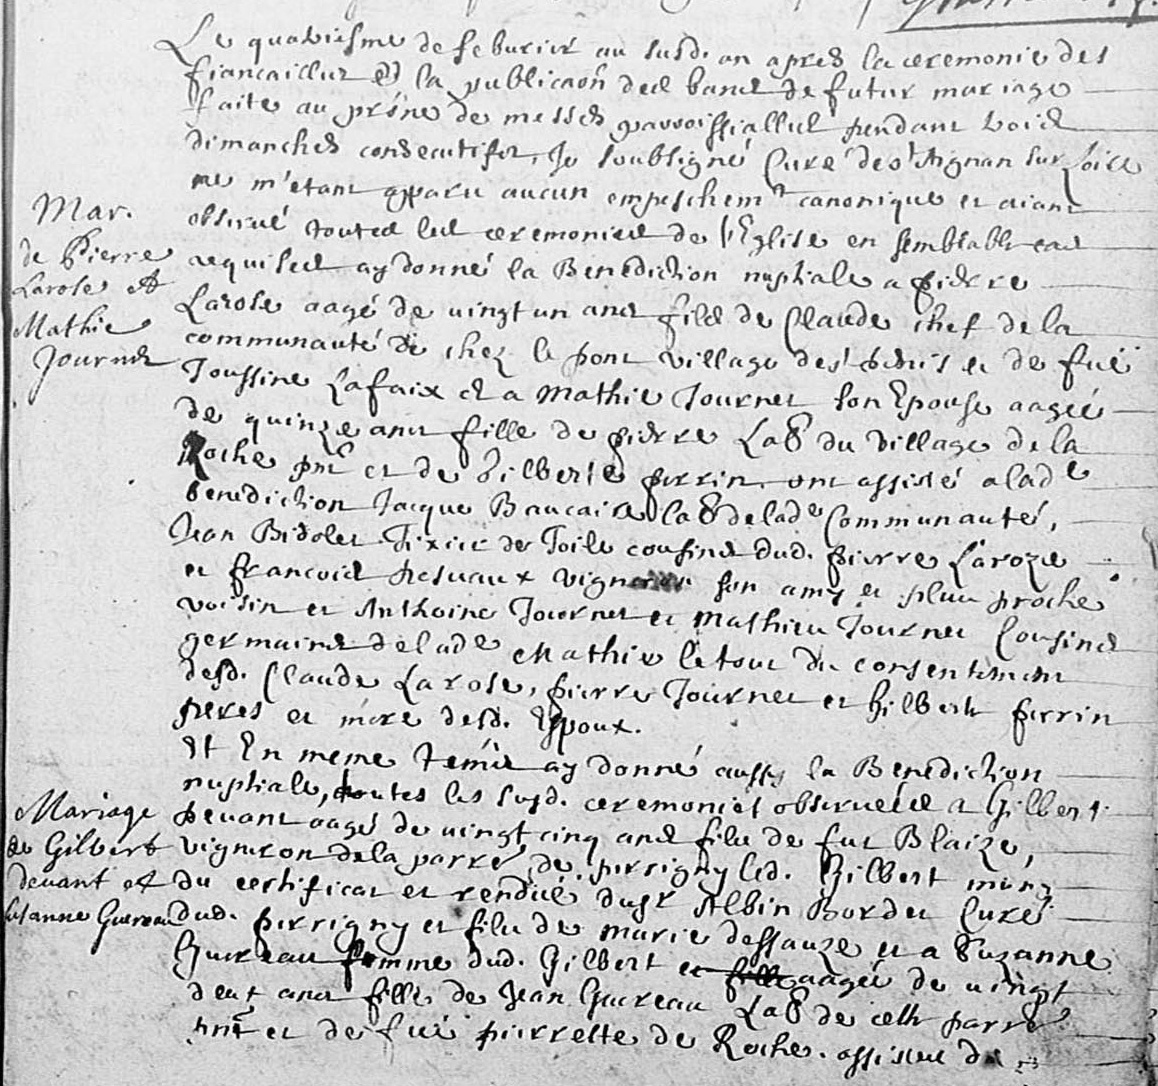 Le quatriesme de feburier au susd. an apres la ceremonie des
fiancailles et la publicaon des bans de futur mariage
faite au prône de messes parroissialles pendant trois
dimanches consecutifes, Je soubsigné Curé de st Aignan sur Loire
ne m'etant apparu aucun empeschemt canonique et aiant
obserué toutes les ceremonies de l'Eglise en semblable cas
requises ay donné la Benediction nuptiale a pierre
Mar.
de Pierre
Larose et
Mathie
Journet
Larose aagé de uingt un ans fils de Claude chef de la
communauté de chez le pont village de st et de fuë
Toussine Lafaix et a Mathie Journet son Epouse aagée
de quinze ans fille de pierre Lab du village de la
Roche pnt et de Gilberte perrin. ont assisté a lade
benediction Jacque Baucaire lab de lade Communauté,
Jean Bidolet Tixier de Toile cousins dud. pierre Laroze
et francois vigneron son amy et plus proche
voisin et Anthoine Journet et Mathieu Journet Cousins
germains de lade Mathie le tout du consentement
desd. Claude Larose, pierre Journet et Gilberte perrin
peres et mere desd. Epoux.
Et En meme temps ay donné aussy la Benediction
nuptiale, toutes les susd. ceremonies obseruées a Gilbert
Mariage
de Gilbert
devant et
susanne Guereau
Devant aagé de uingt cinq ans fils de fut Blaize,
vigneron de la parre de persigny led. Gilbert muny
du certificat et rendue du sr Albin Border Curé
dud. perrigny et fils de marie dessauze et a Suzanne
Guereau femme dud. Gilbert et fille aagée de uingt
deux ans fille de Jean Guereau Lab de cette parre
pnt et de fuë pierrette de Roche. assistes de